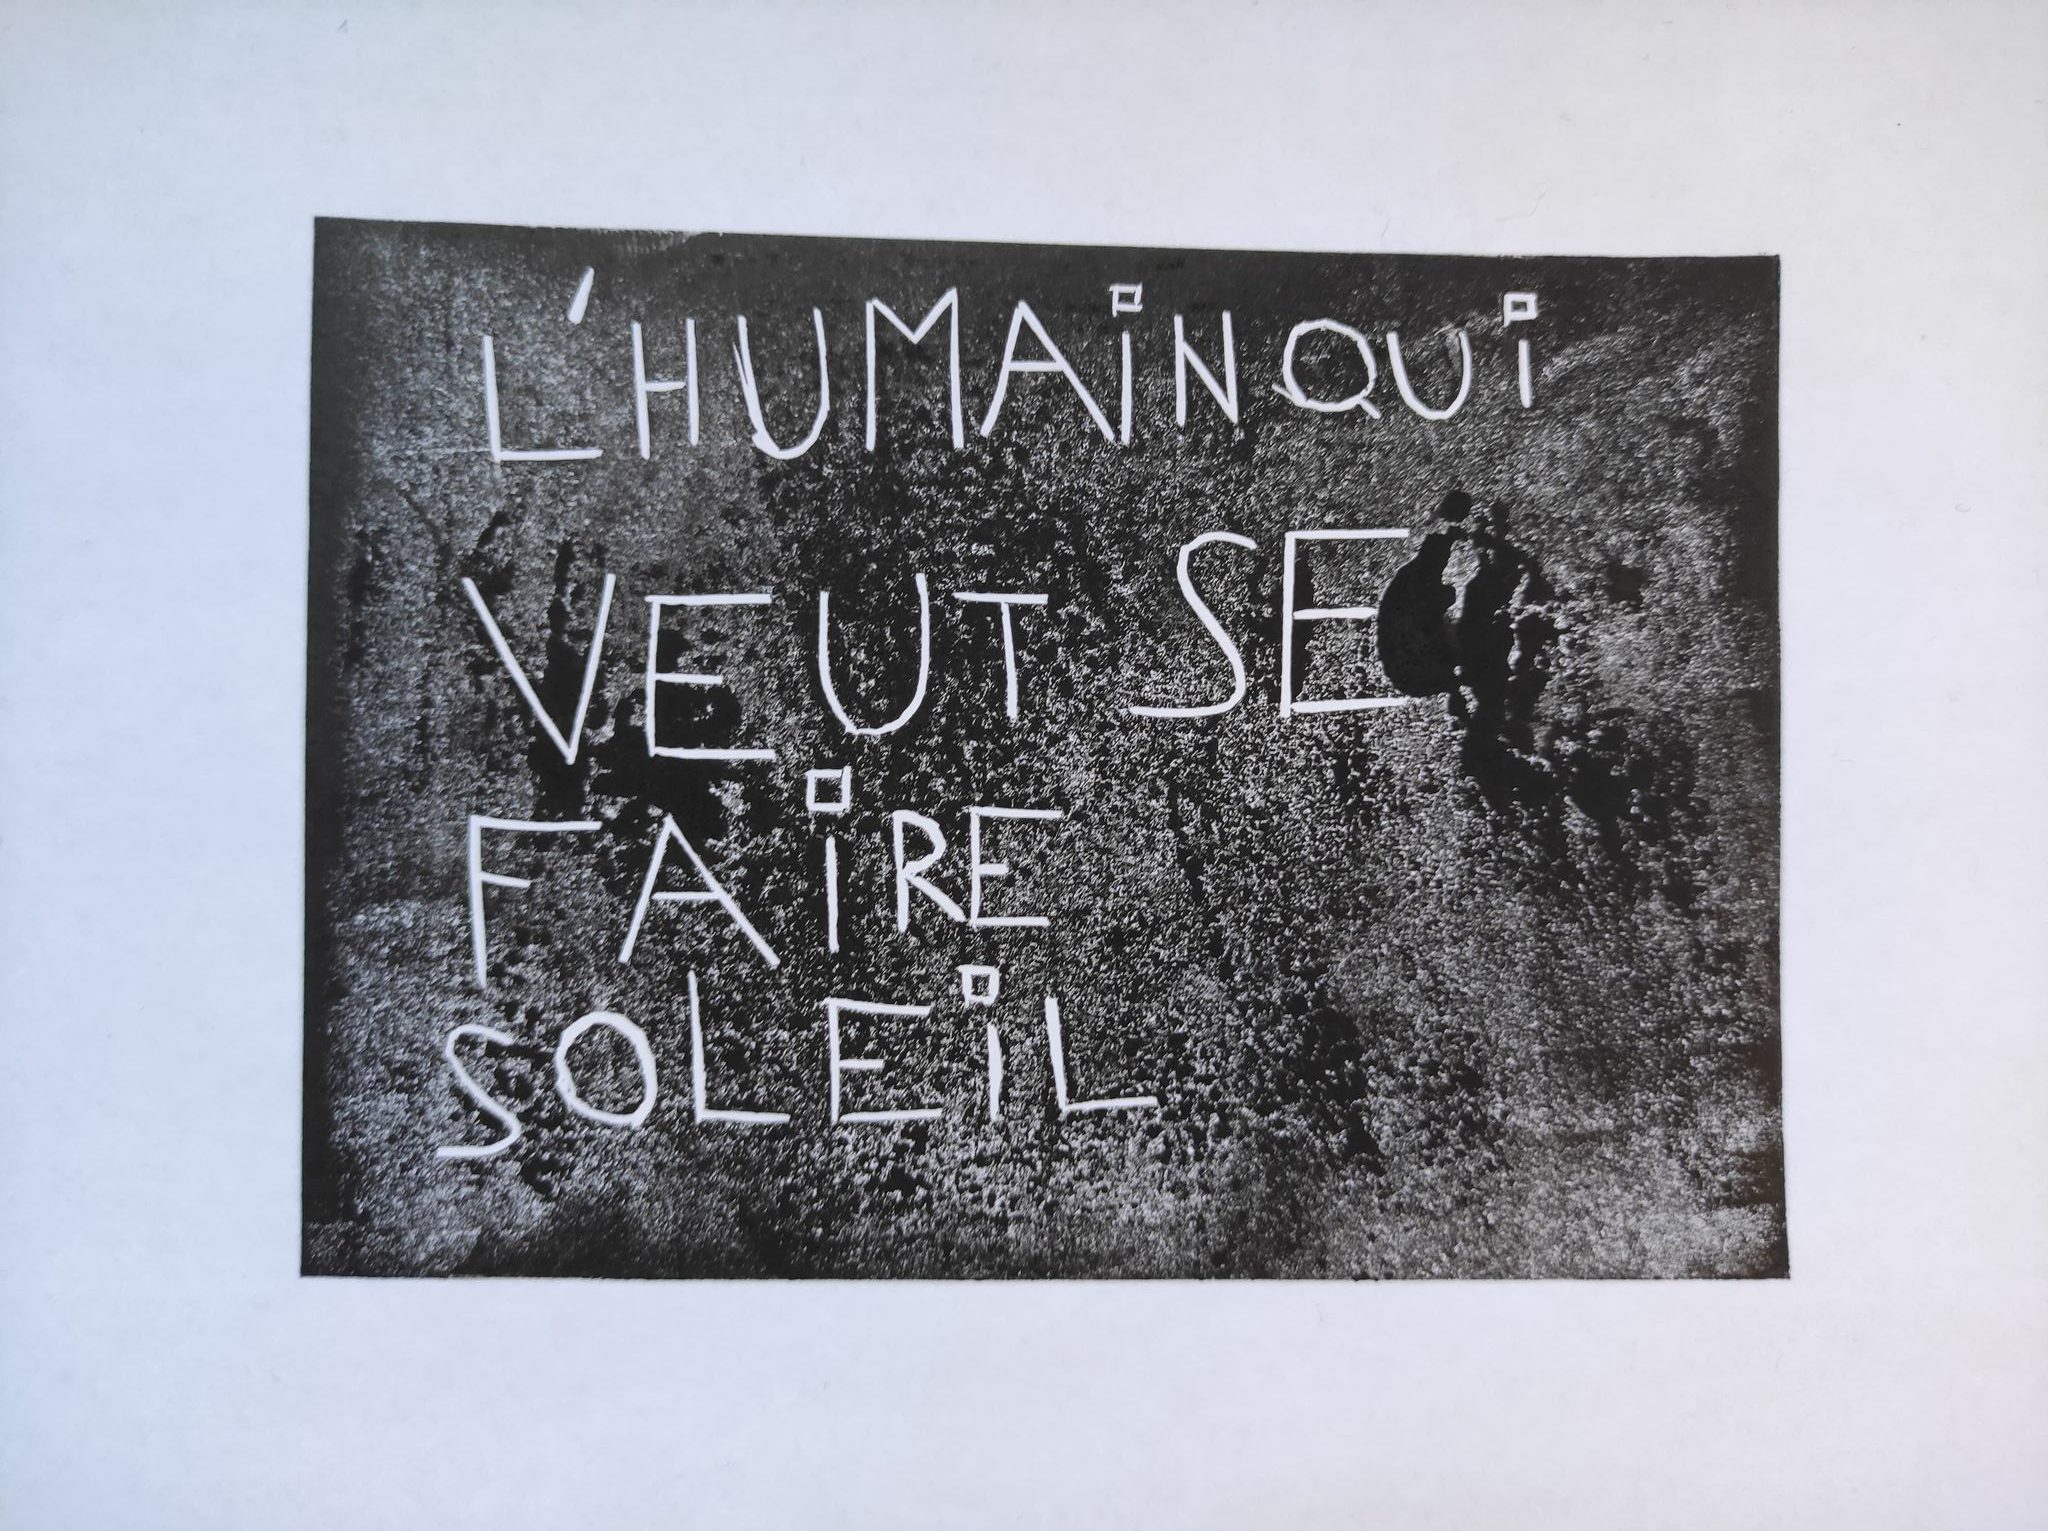 L'HUMAiN QUi
VEUT SE
FAiRE
SOLEiL